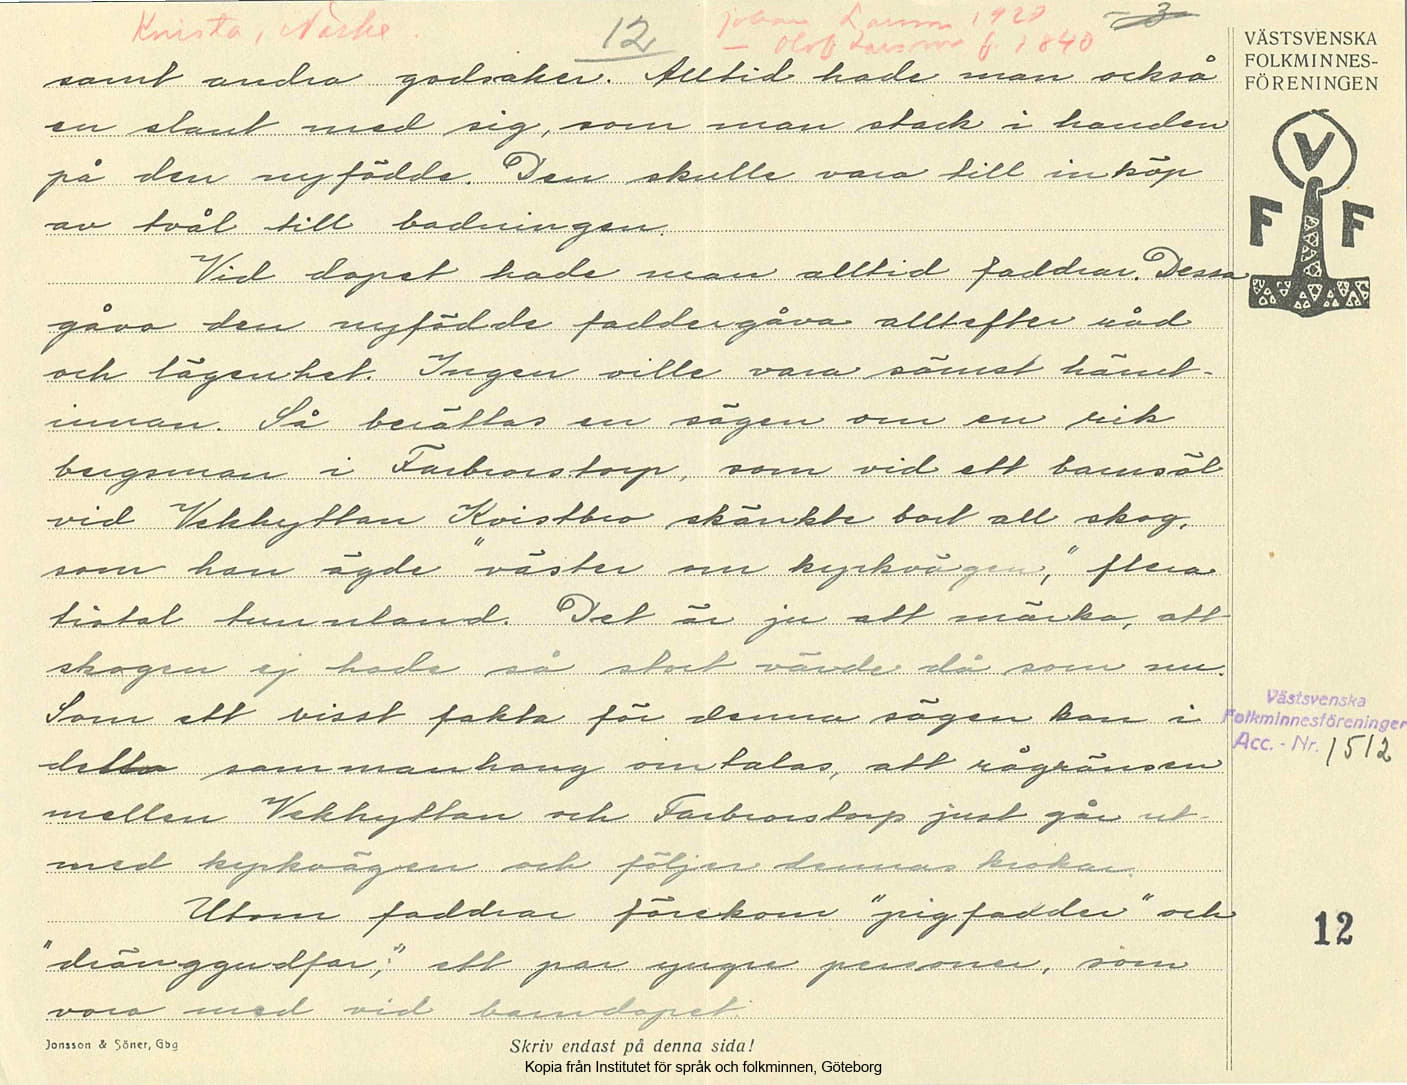 Knista, Närke.
12
Johan Larsson 1927
— Olof Larsson f. 1840
3
VÄSTSVENSKA
FOLKMINNES-
FÖRENINGEN
V
F F
samt andra godsaker. Alltid hade man också
en slant med sig, som man stack i handen
på den nyfödde. Den skulle vara till inköp
av tvål till badningen.
Vid dopet hade man alltid faddrar. Dessa
gåvo den nyfödde faddergåva alltefter råd
och lägenhet. Ingen ville vara sämst känd-
innan. Så berättas en sägen om en rik
bergsman i Farbrorstorp, som vid ett barnsöl
vid Vekhyttan Kvistbro skänkte bort all skog,
som han ägde "väster om kyrkvägen," flera
tiotal tunnland. Det är ju att märka, att
skogen ej hade så stort värde då som nu.
Som ett visst fakta för denna sägen kan i
detta sammanhang omtalas, att rågränsen
mellan Vekhyttan och Farbrorstorp just går ut-
med kyrkvägen och följer dennas krokar.
Utom faddrar förekom "pigfadder" och
"dränggudfar," ett par yngre personer, som
voro med vid barndopet.
Västsvenska
Folkminnesföreningen
Acc. - Nr. 1512
12
Jonsson & Söner, Gbg
Skriv endast på denna sida!
Kopia från Institutet för språk och folkminnen, Göteborg